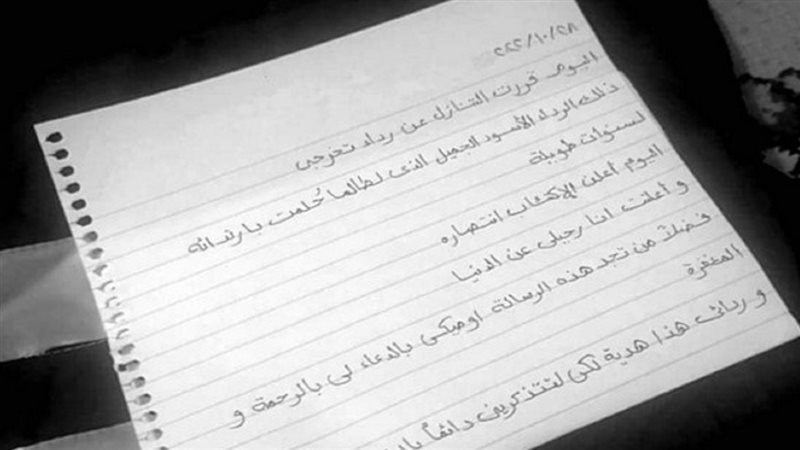 ٢٠٢٢/١٠/٢٨
اليوم قررت التنازل عن رداء تخرجى
ذلك الرداء الأسود الجميل الذى لطالما حُلمت بارتدائه
لسنوات طويلة
اليوم أعلن الإكتئاب انتصاره
و أعلنت انا رحيلى عن الدنيا
فضلاً من تجد هذه الرسالة اوصيكى بالدعاء لى بالرحمة و
المغفرة
و ردائى هذا هدية لكى لتتذكرينى دائماً